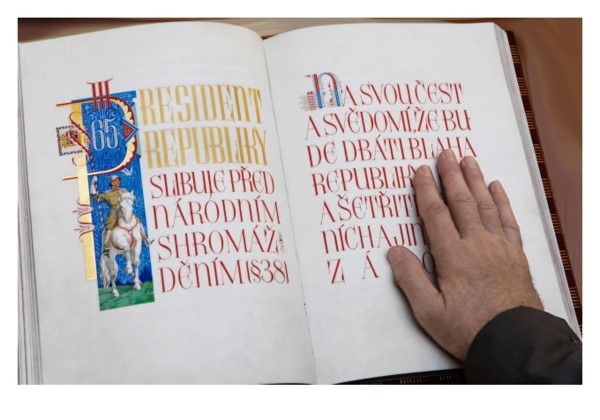 III
65
PRESIDENT
REPUBLIKY
SLIBUJE PŘED
NÁRODNÍM
SHROMÁŽ
DĚNÍM (§38)
NA SVOU ČEST
A SVĚDOMÍ, ŽE BU
DE DBÁTI BLAHA
REPUBLIK
A ŠETŘIT
NÍCH A JIN
Z Á